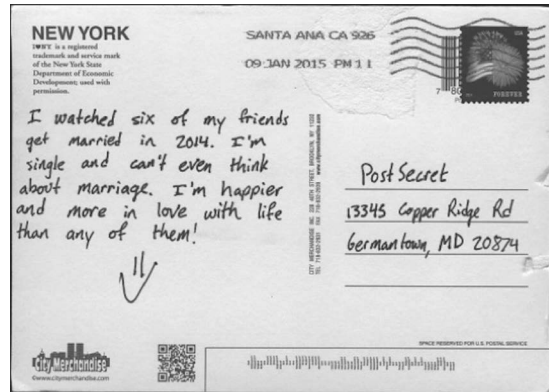 NEW YORK
I♥NY is a registered
trademark and service mark
of the New York State
Department of Economic
Development; used with
permission.
SANTA ANA CA 926
09 JAN 2015 PM 1 1
FOREVER
I watched six of my friends
get married in 2014. I'm
single and can't even think
about marriage. I'm happier
and more in love with life
than any of them!
CITY MERCHANDISE INC. 228 40TH STREET, BROOKLYN, NY 11232
TEL 718-832-2931 FAX 718-832-2939 www.citymerchandise.com
PostSecret
13345 Copper Ridge Rd
Germantown, MD 20874
SPACE RESERVED FOR U.S. POSTAL SERVICE
City Merchandise
©www.citymerchandise.com